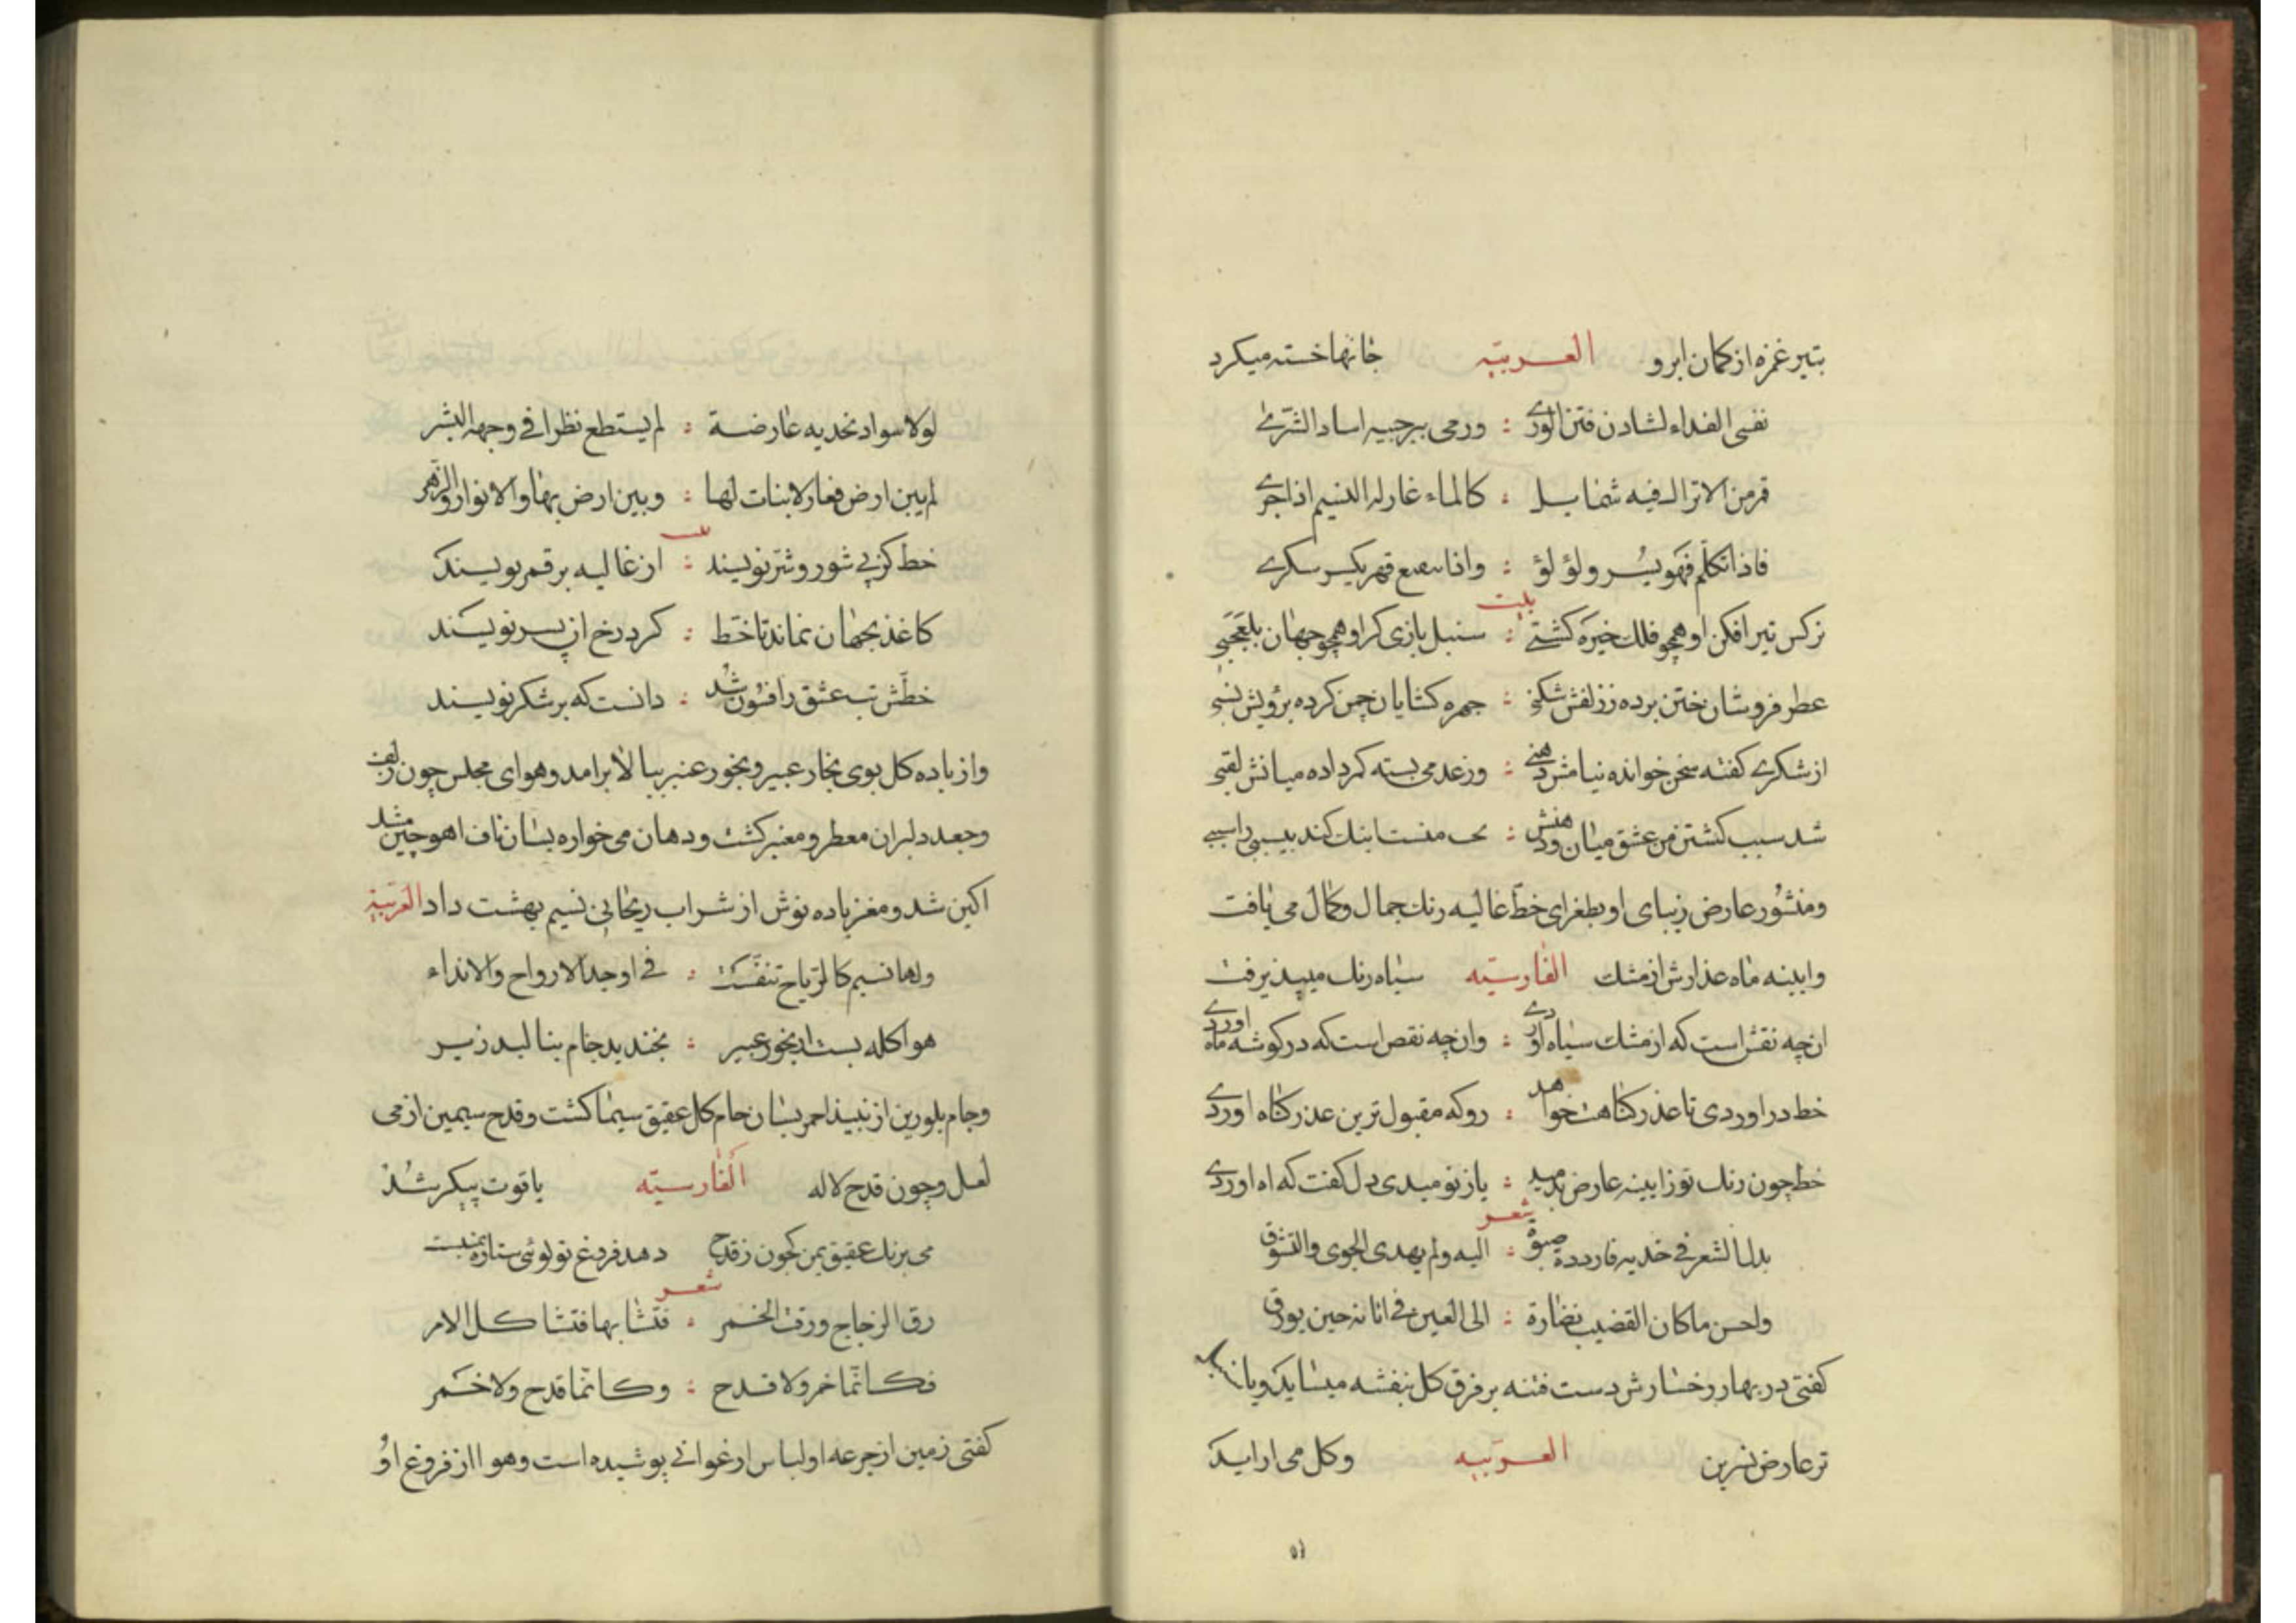 بتیر غمزه از کمان ابرو العربیّه جانها خسته میکرد
نفسی الفداء لشادن فتن الوری : ورمی بحاجبیه اساد الشری
قمر من الاتراک فیه شمایل : کالماء غازله النسیم اذا جری
فاذا تکلم فهو ولؤلؤ : واذا
بیت
نرکس تیر افکن او همچو فلک خیره کشتی : سنبل بازی کر او همچو جهان بلعجبی
عطر فروشان ختن برده ز زلفش شکنی : چهره کشایان چمن کرده برویش نسبی
از شکری کفته سخن خوانده نیامش دهنی : وز عدمی بسته کمر داده میانش لقبی
شد سبب کشتن من عشق میان ودهنش : کند بیسبی را سببی
ومنشور عارض زیبای او بطغرای خطّ غالیه رنک جمال وکمال می یافت
وایینه ماه عذارش از مشک الفارسیّه سیاه رنک میپذیرفت
ان چه نقش است که از مشک سیاه اوردی : وان چه نقص است که در کوشه ماه اوردی
خط در اوردی تا عذر کناهت خواهد : رو که مقبول ترین عذر کناه اوردی
خط چون رنک تو از ایینه عارض بدمید : باز نومیدی دل کفت که اه اوردی
شعر
بدا الشعر فی خدیه فازددت صبوة : الیه ولم یهدی الجوی والتشوق
واحسن ماکان القضیب نضارة : الی العین فی ابانه حین یورق
کفتی در بهار رخسارش دست فتنه بر فرق کل بنفشه میساید ویا
تر عارض نسرین العربیّه وکل می اراید
لولا سواد بخدیه عارضة : لم یستطع نظرا فی وجهه البشر
لم یبن ارض قفار لا نبات لها : وبین ارض بها والانوار والزهر
بیت
خط کز پی شور وشر نویسند : از غالیه بر قمر نویسند
کاغذ بجهان نماند تا خط : کرد رخ ان پسر نویسند
خطّش تب عشق را فسون شد : دانست که بر شکر نویسند
واز باده کل بوی بخار عبیر وبخور عنبر ببالا برامد وهوای مجلس چون زلف
وجعد دلبران معطر ومعنبر کشت ودهان می خواره بسان ناف اهو چین مشد
اکین شد ومغز باده نوش از شراب ریحانی نسیم بهشت داد العربیّه
ولها نسیم کالریاح تنفست : فی اوجه الارواح والانداء
هوا کله بست از بخور عبیر : بخندید جام بنالید زیر
وجام بلورین از نبیذ احمر بسان جام کل عقیق سیما کشت وقدح سیمین از می
لعل وچون قدح لاله الفارسیّه یاقوت پیکر شد
می برنک عقیق یمن که چون ز قدح دهد فروغ تو کوئی ستاره یمنیست
شعر
رق الزجاج ورقت الخمر : فتشابها فتشاکل الامر
فکانّما خمر ولا قدح : وکانّما قدح ولا خمر
کفتی زمین از جرعه او لباس ارغوانی پوشیده است وهوا از فروغ او